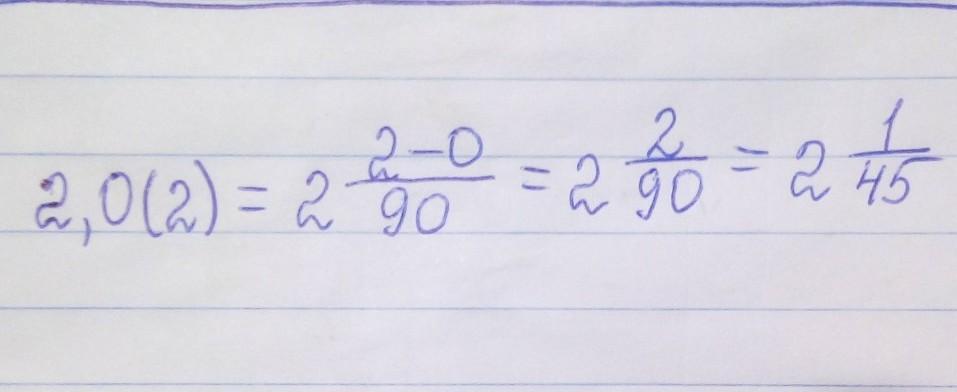 2,0(2) = 2 2-0/90 = 2 2/90 = 2 1/45